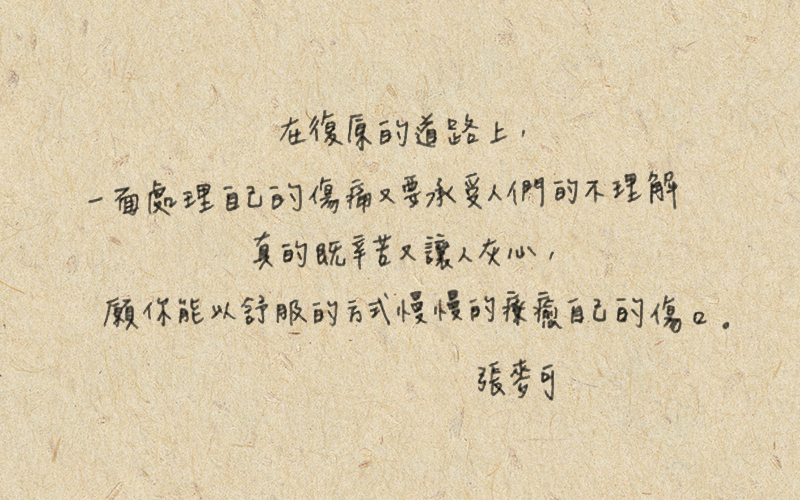 在復原的道路上，
一面處理自己的傷痛又要承受人們的不理解
真的既辛苦又讓人灰心，
願你能以舒服的方式慢慢的療癒自己的傷口。
張麥可